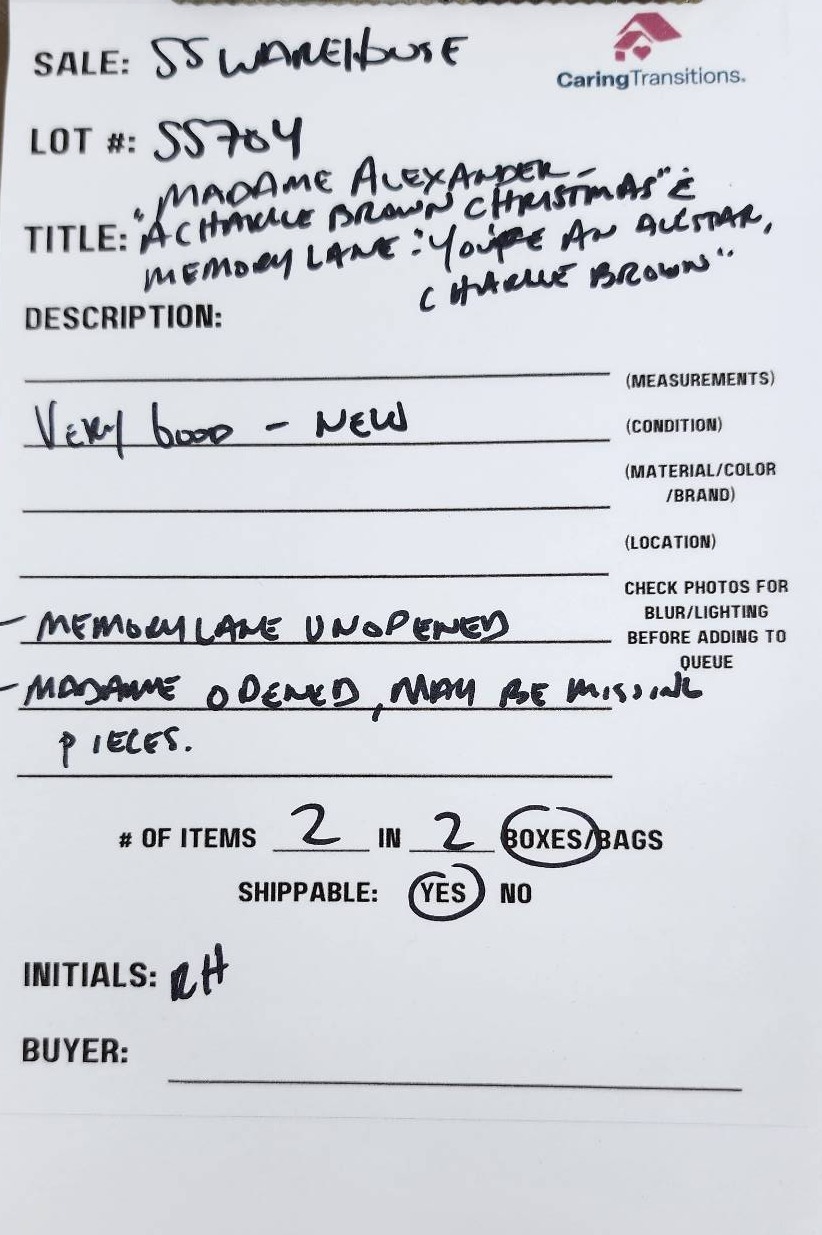 SALE: SS WAREHOUSE
CaringTransitions.
LOT #: SS704
MADAME ALEXANDER -
TITLE: "A CHARLIE BROWN CHRISTMAS" &
MEMORY LANE: "YOU'RE AN ALLSTAR,
CHARLIE BROWN"
DESCRIPTION:
(MEASUREMENTS)
VERY GOOD - NEW (CONDITION)
(MATERIAL/COLOR
/BRAND)
(LOCATION)
CHECK PHOTOS FOR
BLUR/LIGHTING
BEFORE ADDING TO
QUEUE
- MEMORY LANE UNOPENED
- MADAME OPENED, MAY BE MISSING
PIECES.
# OF ITEMS 2 IN 2 BOXES/BAGS
SHIPPABLE: YES NO
INITIALS: RH
BUYER: